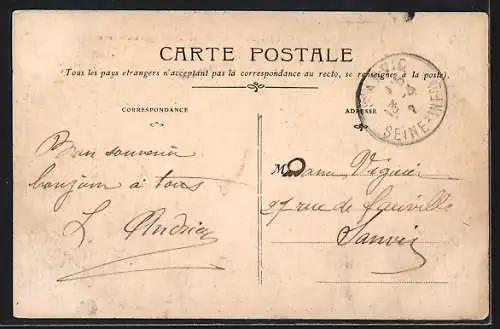 CARTE POSTALE
(Tous les pays étrangers n'acceptant pas la correspondance au recto, se renseigner à la poste).
CORRESPONDANCE
ADRESSE
SEINE-INF
Bon souvenir
bonjour à tous
L Andrieu
Madame Viguier
27 rue de
Sanvic